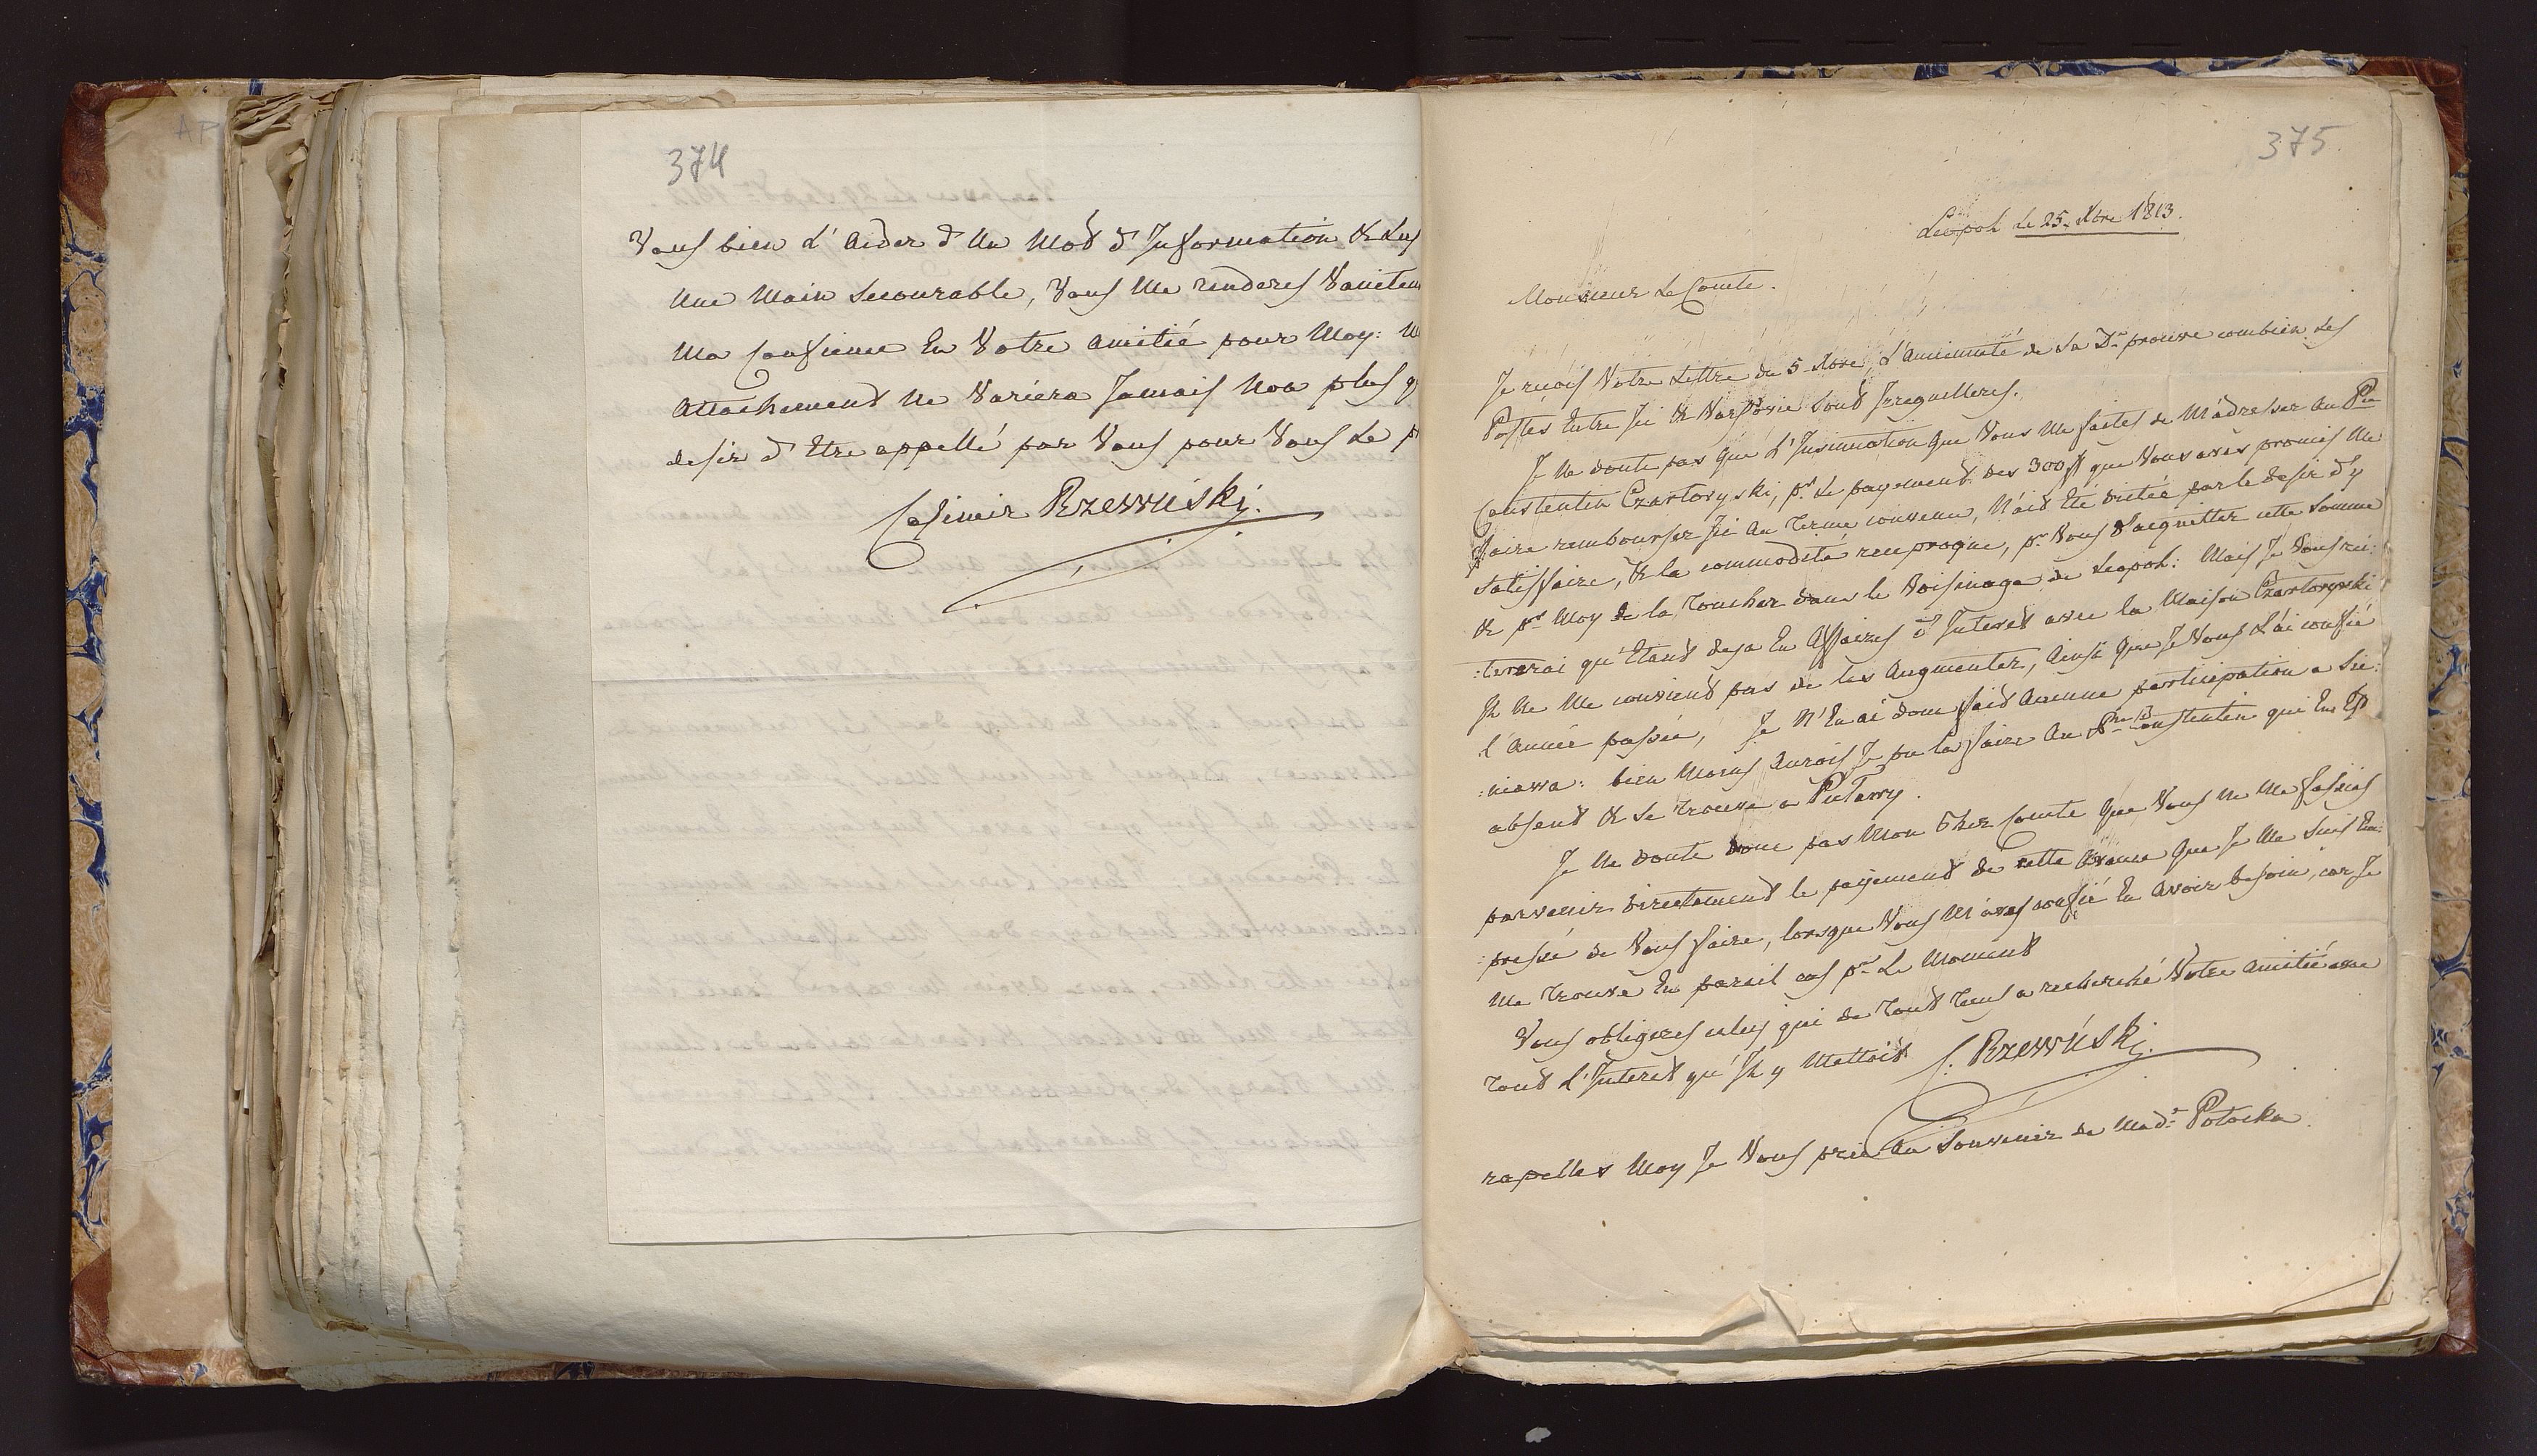 374
Vous bien l'aider d'un Mot d'Information & Luy
Une Main Secourable, Vous Me renderes
Ma Confience En Votre amitié pour Moy:
Attachement Ne Variera Jamais Non plus
desir d'Etre appellé par Vous pour Vous Le
Casimir Rzewuski.
375
Léopol Le 25. Xbre 1813.
Monsieur Le Comte.
Je reçois Votre Lettre du 5 Xbre, L'Ancienneté de Sa De prouve combien Les
Postes Entre Ici & Varsovie Sont Irreguilleres.
Je Ne doute pas Que L'Insinuation Que Vous Me faites de M'adresser Au Pce
Constentin Czartoryski, pr Le payement des 300 # que Vous avès promis Me
faire rembourser Ici Au Terme convenu, N'aid Eté dictée par le desir d'y
Satisfaire, & la commodité reciproque, pr Vous d'acquitter cette Somme
& pr Moy de la Toucher dans le Voisinage de Leopol: Mais Je Vous réi:
:tererai qu'Etant deja En Affaires d'Interet avec la Maison Czartoryski
Il Ne Me convient pas de les Augmenter, Ainsi Que Je Vous L'ai confié
l'Année passée, Je N'En ai donc fait Aucune participation a Sie:
:niawa: bien Moins Aurois Je pu la faire Au Pce Constentin qui En Est
absent & Se Trouve a Pulawy.
Je Ne doute donc pas Mon Cher Comte Que Vous Ne Me fassies
parvenir directement le payement de cette Avance Que Je Me Suis Em:
:pressé de Vous faire, lorsque Vous M'aves confié En Avoir besoin, car Je
Me Trouve En pareil cas pr Le Moment
Vous obligeres celuy qui de Tout Tems a recherché Votre Amitié avec
Tout L'Interet qu'Il y Mettoit C. Rzewuski.
rapelles Moy Je Vous prie Au Souvenir de Made Potocka.